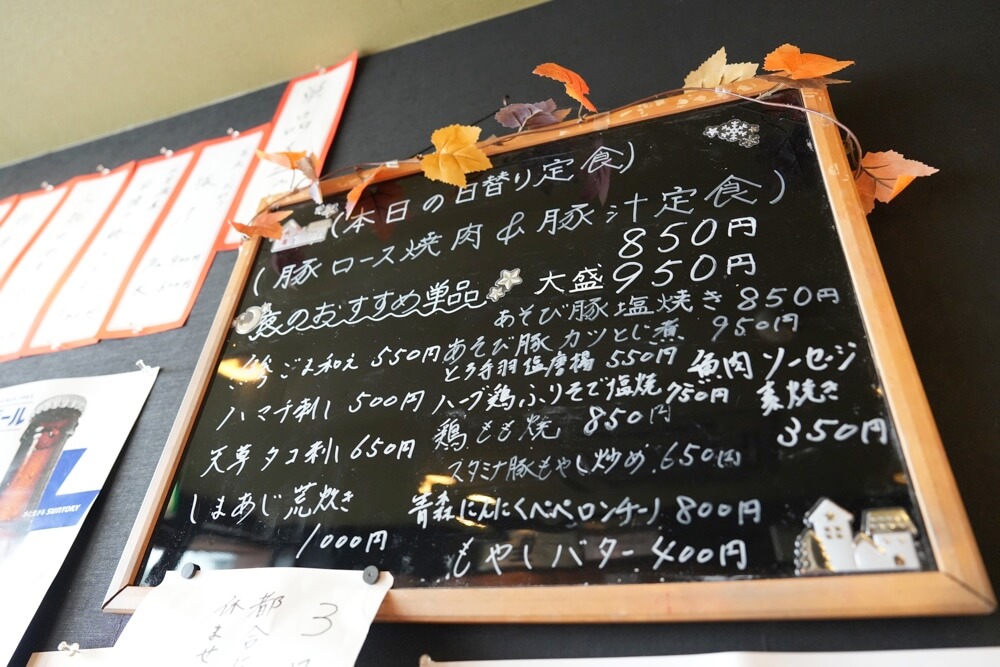 (本日の日替り定食)
(豚ロース焼肉&豚汁定食)
850円
大盛950円
夜のおすすめ単品
ごま和え 550円
ハマチ刺し 500円
天草タコ刺し 650円
しまあじ荒炊き
1000円
あそび豚塩焼き 850円
あそび豚カツとじ煮 950円
とろ手羽塩唐揚 550円
ハーブ鶏ふりそで塩焼 750円
鶏もも焼 850円
スタミナ豚もやし炒め 650円
青森にんにくペペロンチーノ 800円
もやしバター 400円
魚肉ソーセージ
素焼き
350円
ール
SUNTORY
3
都合に
休ませ